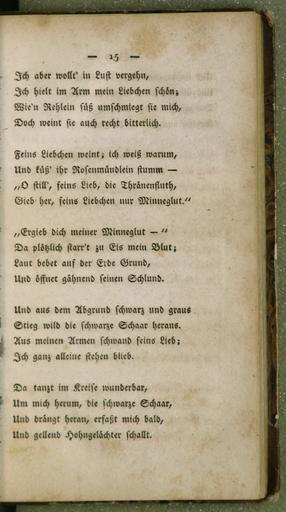 — 15 —
Ich aber wollt' in Lust vergehn,
Ich hielt im Arm mein Liebchen schön;
Wie'n Rehlein süß umschmiegt sie mich,
Doch weint sie auch recht bitterlich.
Feins Liebchen weint; ich weiß warum,
Und küß' ihr Rosenmündlein stumm —
„O still', feins Lieb, die Thränenfluth,
Gieb her, feins Liebchen nur Minneglut.“
„Ergieb dich meiner Minneglut —“
Da plötzlich starr't zu Eis mein Blut;
Laut bebet auf der Erde Grund,
Und öffnet gähnend seinen Schlund.
Und aus dem Abgrund schwarz und graus
Stieg wild die schwarze Schaar heraus.
Aus meinen Armen schwand feins Lieb;
Ich ganz alleine stehen blieb.
Da tanzt im Kreise wunderbar,
Um mich herum, die schwarze Schaar,
Und drängt heran, erfaßt mich bald,
Und gellend Hohngelächter schallt.